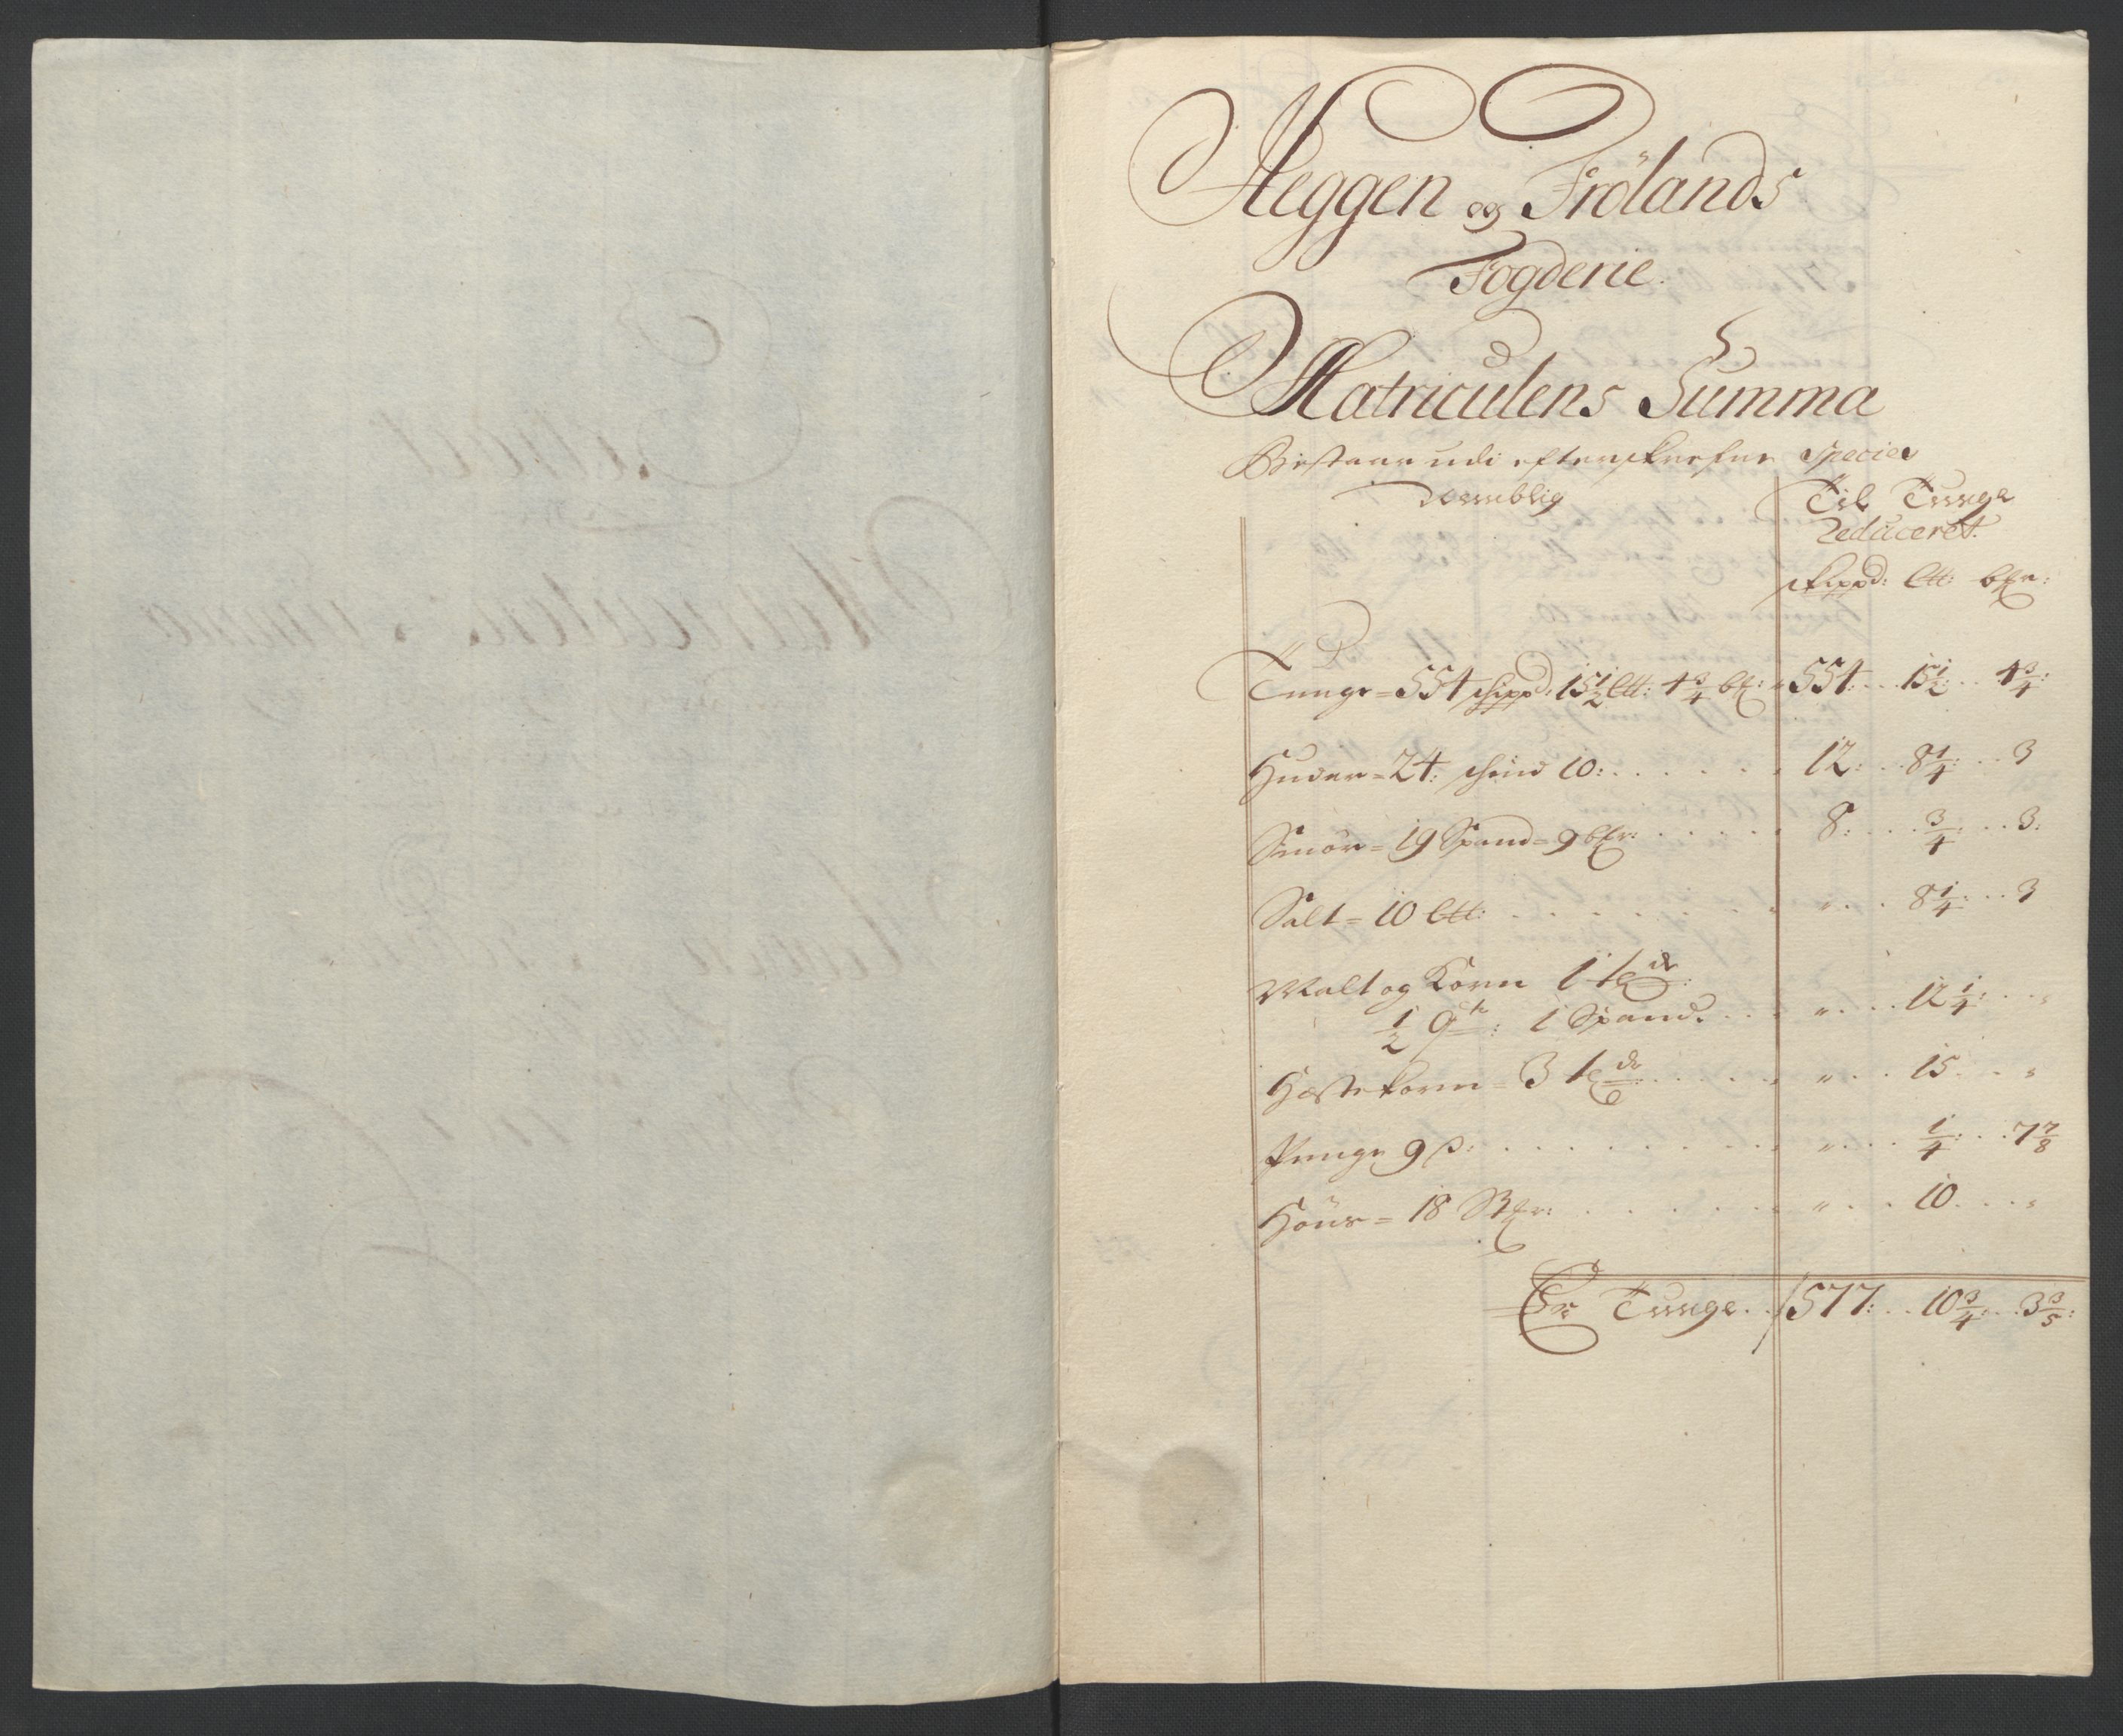 Heggen og Frölands
Fogderie.
Matriculens Summa
Bestaar udi efterskrefne Species
Nemblig
Til Tunge
Reduceret.
skippd: Ltt: bfr:
Tunge = 554 schippd: 15 1/2 Ltt: 4 3/4 bf: 554: . . 15 1/2: . . 4 3/4:
Huder = 24: schind 10: . . . . . . 12: . . 8 1/4: . . 3
Smör = 19 Spand = 9 bfr: . . . . . 8: . . . 3/4: . . 3:
Salt = 10 Ltt: . . . . . . . . „ . . . 8 1/4: . . 3
Malt og Korn 1 tde:
1/2 qtr: 1 Spand: . . . „ . . . 12 1/4: . . „
Hæstekorn = 3 tdr: . . . . . „ . . . 15 . . . „
Penge 9 β: . . . . . . . . . „ . . . 1/4: . . 7 7/8
Höns = 18 Stfr: . . . . . . „ . . . 10 . . . „
Er Tunge . . 577: . . 10 3/4: . . 3 3/5: